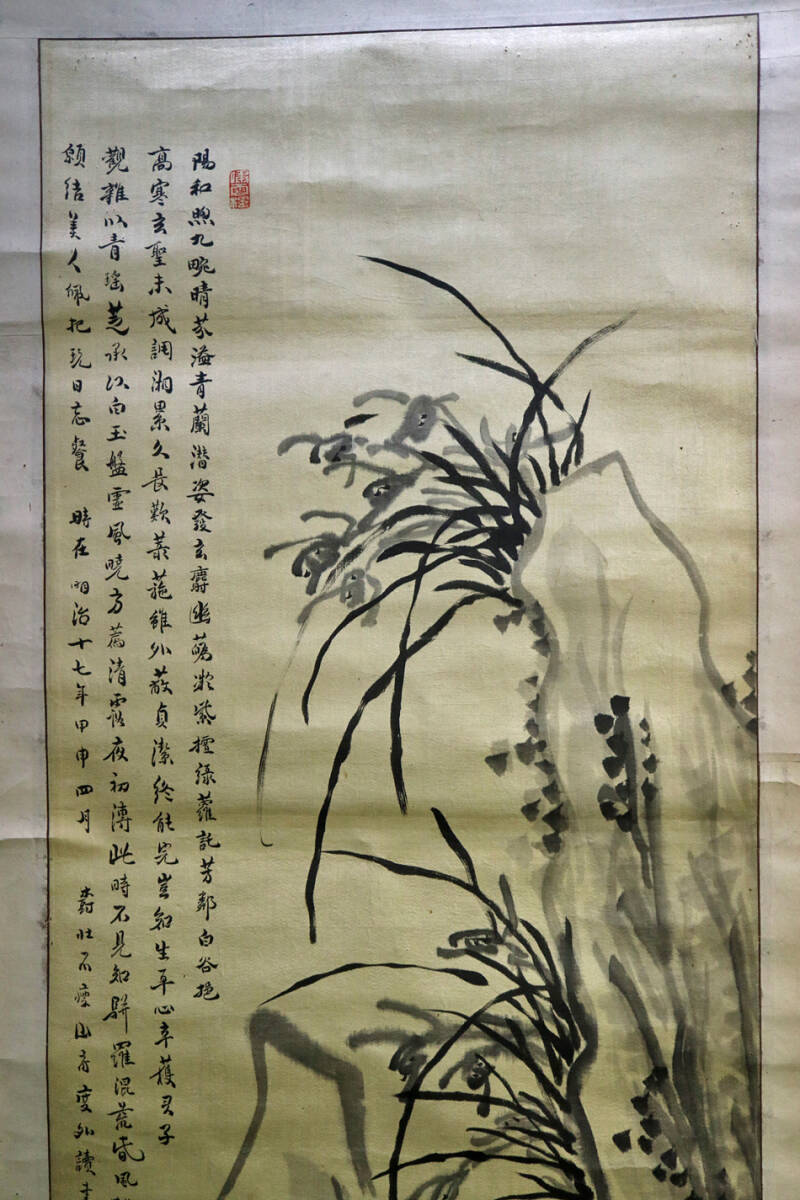 陽和煦九畹晴芬溢青蘭潜姿發玄麝幽蘤凝紫檀綠蘿託芳鄰白谷挹
高寒玄聖未成調湘纍久長歎菉葹雖外蔽貞潔終能完豈知生平心幸獲君子
觀雜以青瑤芝承以白玉盤靈風曉方薦清露夜初漙此時不見知駢羅混荒
願結美人佩把玩日忘餐 時在明治十七年甲申四月 壯不瘦 外讀